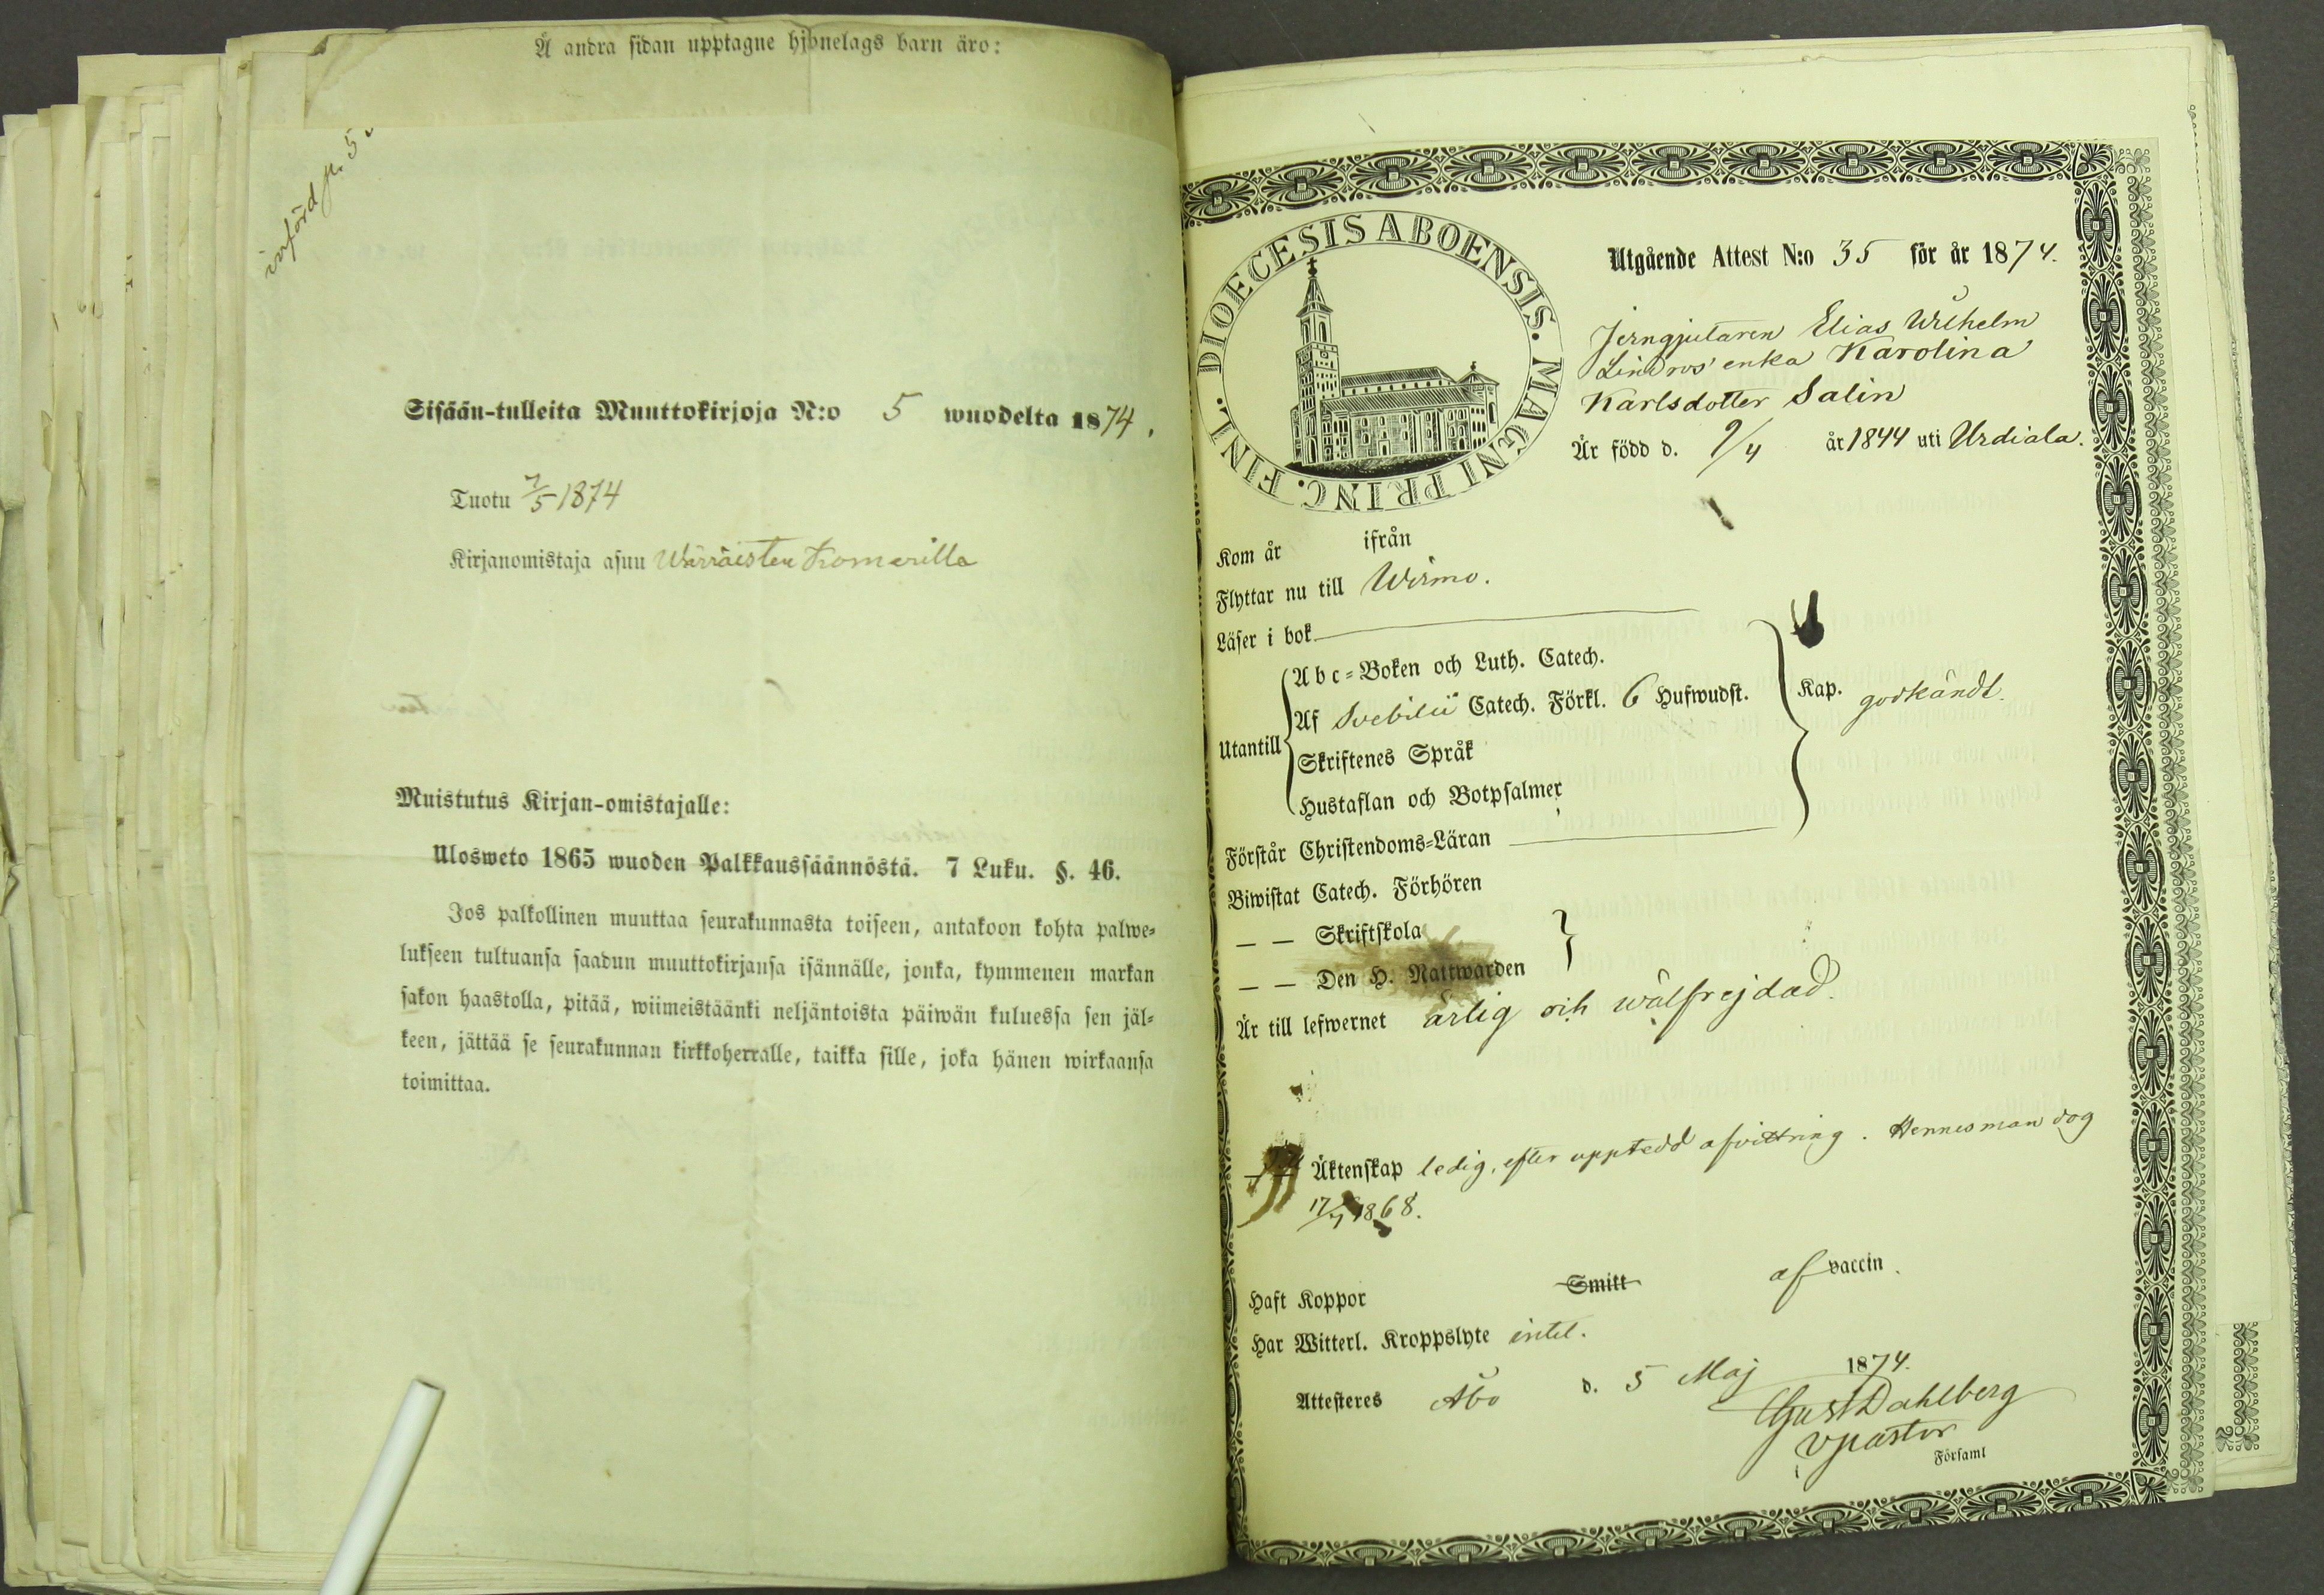 Å andra sidan upptagne hjonelags barn äro:
införd p. 5
Sisään-tulleita Muuttokirjoja N:o 5 wuodelta 1874.
Tuotu 7/5 1874
Kirjanomistaja asuu
Muistutus Kirjan-omistajalle:
Ulosweto 1865 wuoden Palkkaussäännöstä. 7 Luku. §. 46.
Jos palkollinen muuttaa seurakunnasta toiseen, antakoon kohta palwe-
lukseen tultuansa saadun muuttokirjansa isännälle, jonka, kymmenen markan
sakon haastolla, pitää, wiimeistäänki neljäntoista päiwän kuluessa sen jäl-
keen, jättää se seurakunnan kirkkoherralle, taikka sille, joka hänen wirkaansa
toimittaa.
DIOECESIS ABOENSIS. MAGNI PRINC. FINL.
Utgående Attest N:o 35 för år 1874.
Jerngjutaren Elias Wilhelm
Lindros' enka Karolina
Karlsdotter Salin
Är född d. 9/4 år 1844 uti Urdiala.
Kom år ifrån
Flyttar nu till Wirmo.
Läser i bok
Abc-Boken och Luth. Catech.
Utantill Af Svebilii Catech. Förkl. 6 Hufwudst. Kap. godkändt.
Skriftenes Språk
Hustaflan och Botpsalmer
Förstår Christendoms-Läran
Biwistat Catech. Förhören
— — Skriftskola
— — Den H. Nattwarden
Är till lefwernet ärlig och wälfrejdad.
Äktenskap ledig, efter uppstedd afvittring. Hennes man dog
17/7 1868.
Haft Koppor Smitt af vaccin.
Har Witterl. Kroppslyte intet.
Attesteres Åbo d. 5 Maj 1874.
Gust Dahlberg
vpastor
i Församl